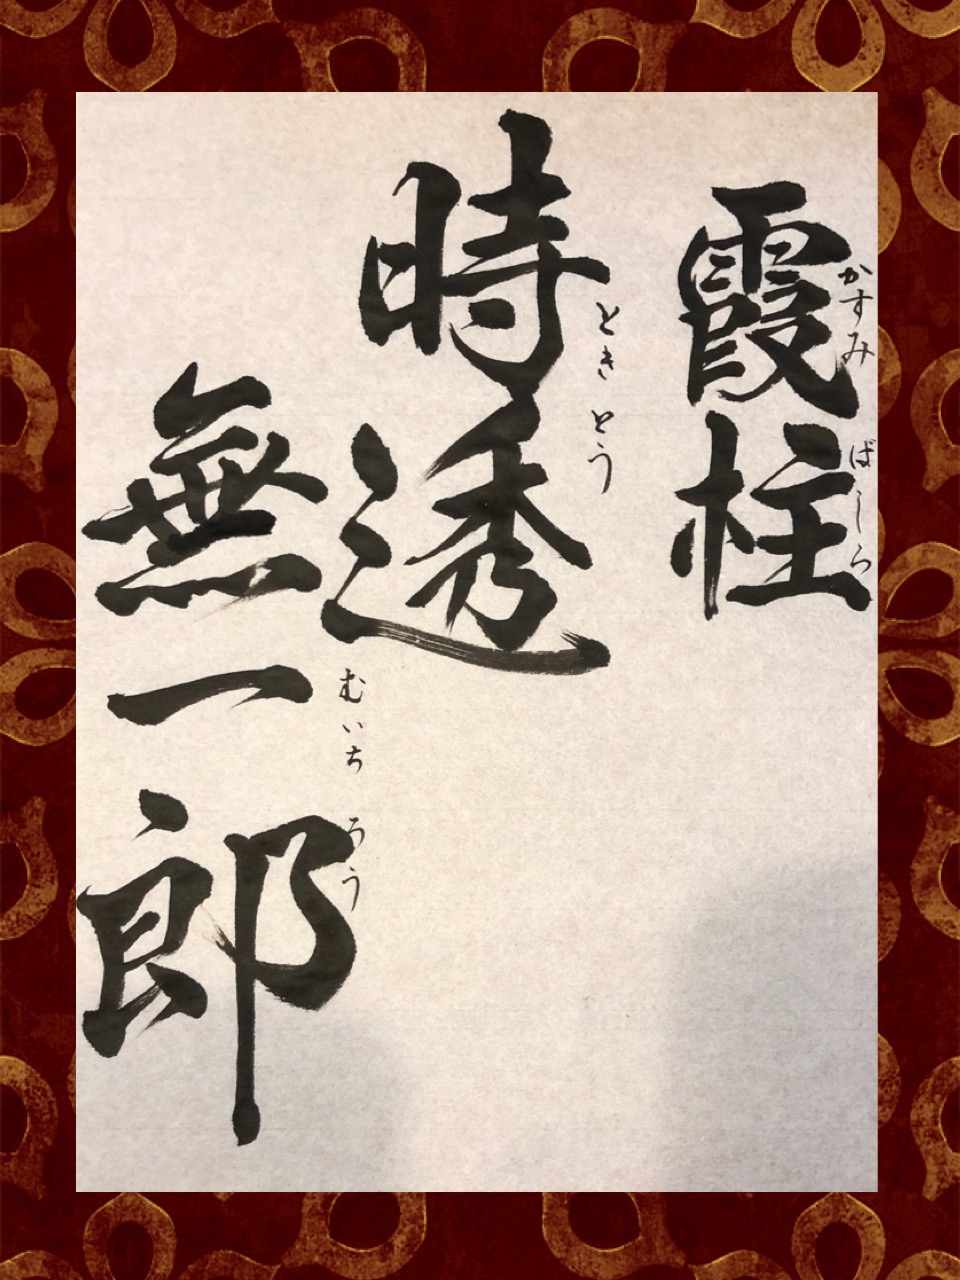 霞柱
かすみばしら
時透
ときとう
無一郎
むいちろう